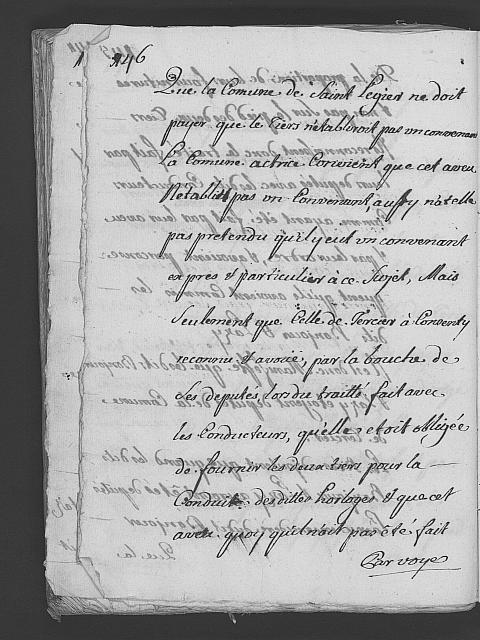 146
Que la Comune de Saint Legier ne doit
payer que le tiers n'etabliroit pas un convenant
La Comune actrice Convient que cet aveu
N'etablit pas un Convenant aussy n'at'elle
pas pretendu qu'il y eut un convenant
expres & particulier à ce Sujet, Mais
Seulement que Celle de Tercier à Conventy
reconnu & avoué, par la bouche de
Ses deputés, lors du traitté fait avec
les Conducteurs, qu'elle etoit obligée
de fournir les deux tiers pour la
Conduite desdittes horloges & que cet
aveu quoy qu'il n'oit pas été fait
Par voye